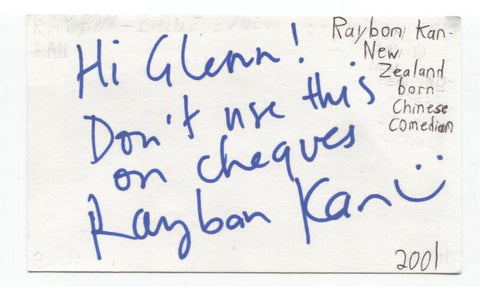 Hi Glenn!
Don't use this
on cheques
Rayban Kan
Raybon Kan-
New
Zealand
born
Chinese
Comedian
2001